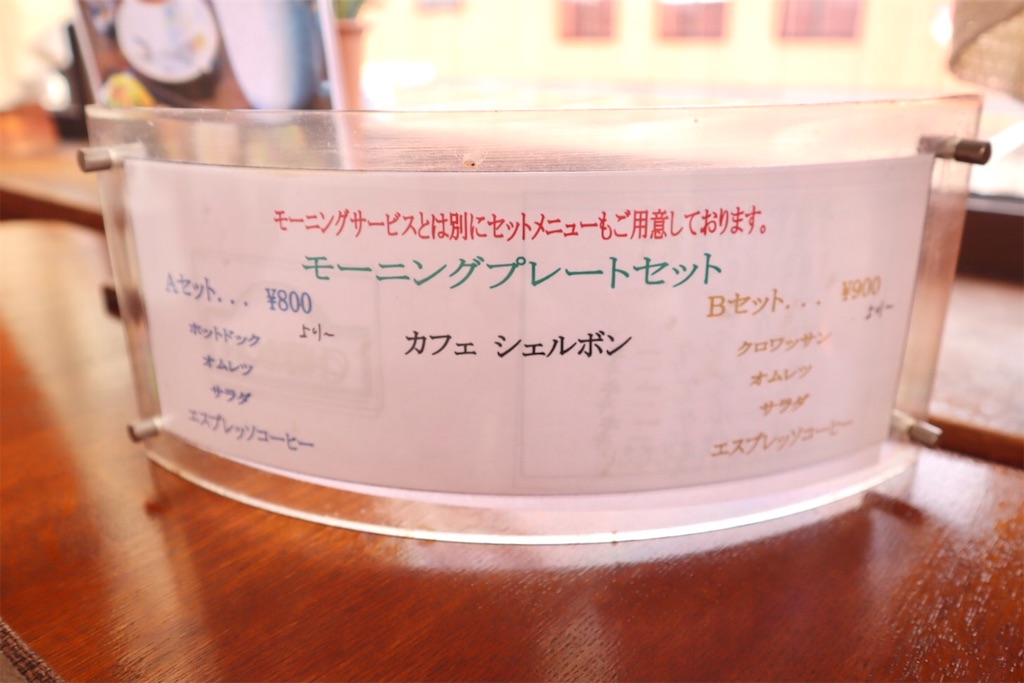 モーニングサービスとは別にセットメニューもご用意しております。
モーニングプレートセット
Aセット... ¥800
より〜
ホットドック
オムレツ
サラダ
エスプレッソコーヒー
カフェ シェルボン
Bセット... ¥900
より〜
クロワッサン
オムレツ
サラダ
エスプレッソコーヒー